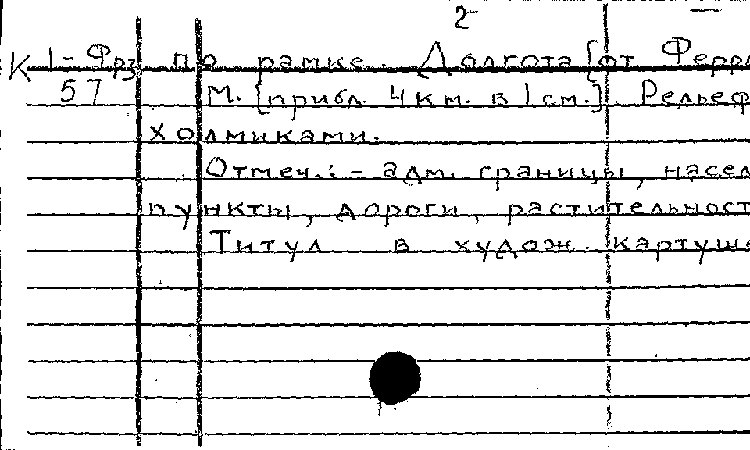 2
К 1-Фрз по рамке. Долгота [от Ферро
57 М. [прибл. 4 км. в 1 см.] Рельеф
холмиками.
Отмеч.: - адм. границы, насел
пункты, дороги, растительност
Титул в худож. картуше